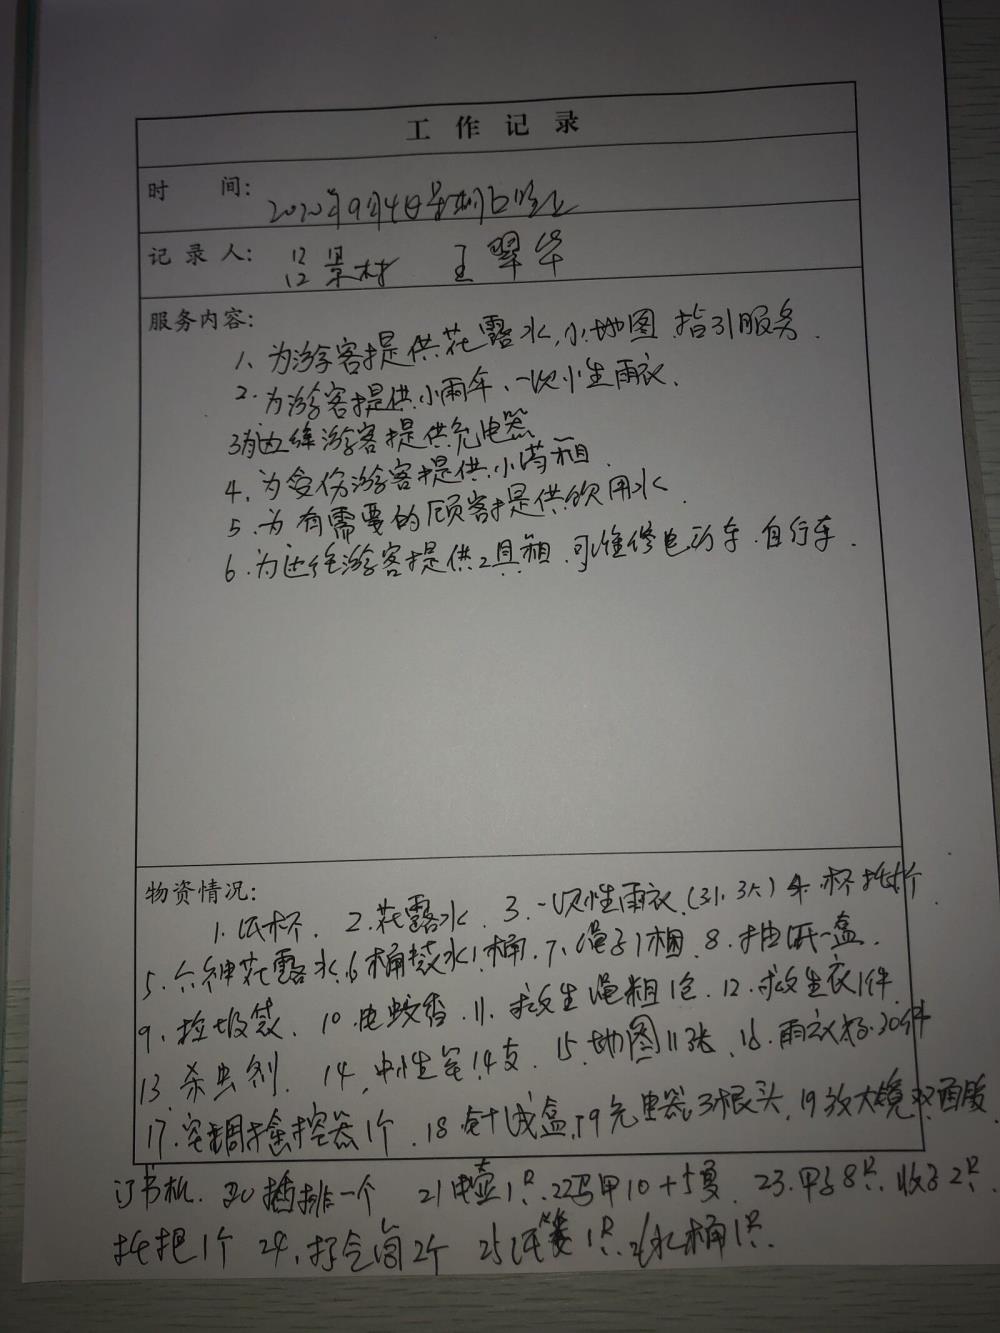 工作记录
时 间: 2020年9月4日星期
记录人: 王翠华
服务内容:
1、为游客提供花露水,小地图.指引服务.
2.为游客提供小雨伞、一次性雨衣.
3为游客提供充电器
4,为受伤游客提供小药箱.
5.为有需要的顾客提供饮用水.
6.为游客提供工具箱.可维修电动车.自行车.
物资情况:
1.纸杯. 2.花露水. 3.一次性雨衣. 杯托
5.六神花露水.6桶装水1桶.7.绳子1捆 8.抽纸一盒.
9.垃圾袋、10.电蚊香.11.救生绳粗1包.12.救生衣1件.
13.杀虫剂. 14.中性笔14支.15.地图11张.16.雨衣30件
17.空调摇控器1个.18.盒.充电器3根头.19放大镜双面胶
订书机.20插排一个 21电壶1只.22马甲10+5 23.甲子8只.2只.
拖把1个 24,2个 25 1只.水桶1只.